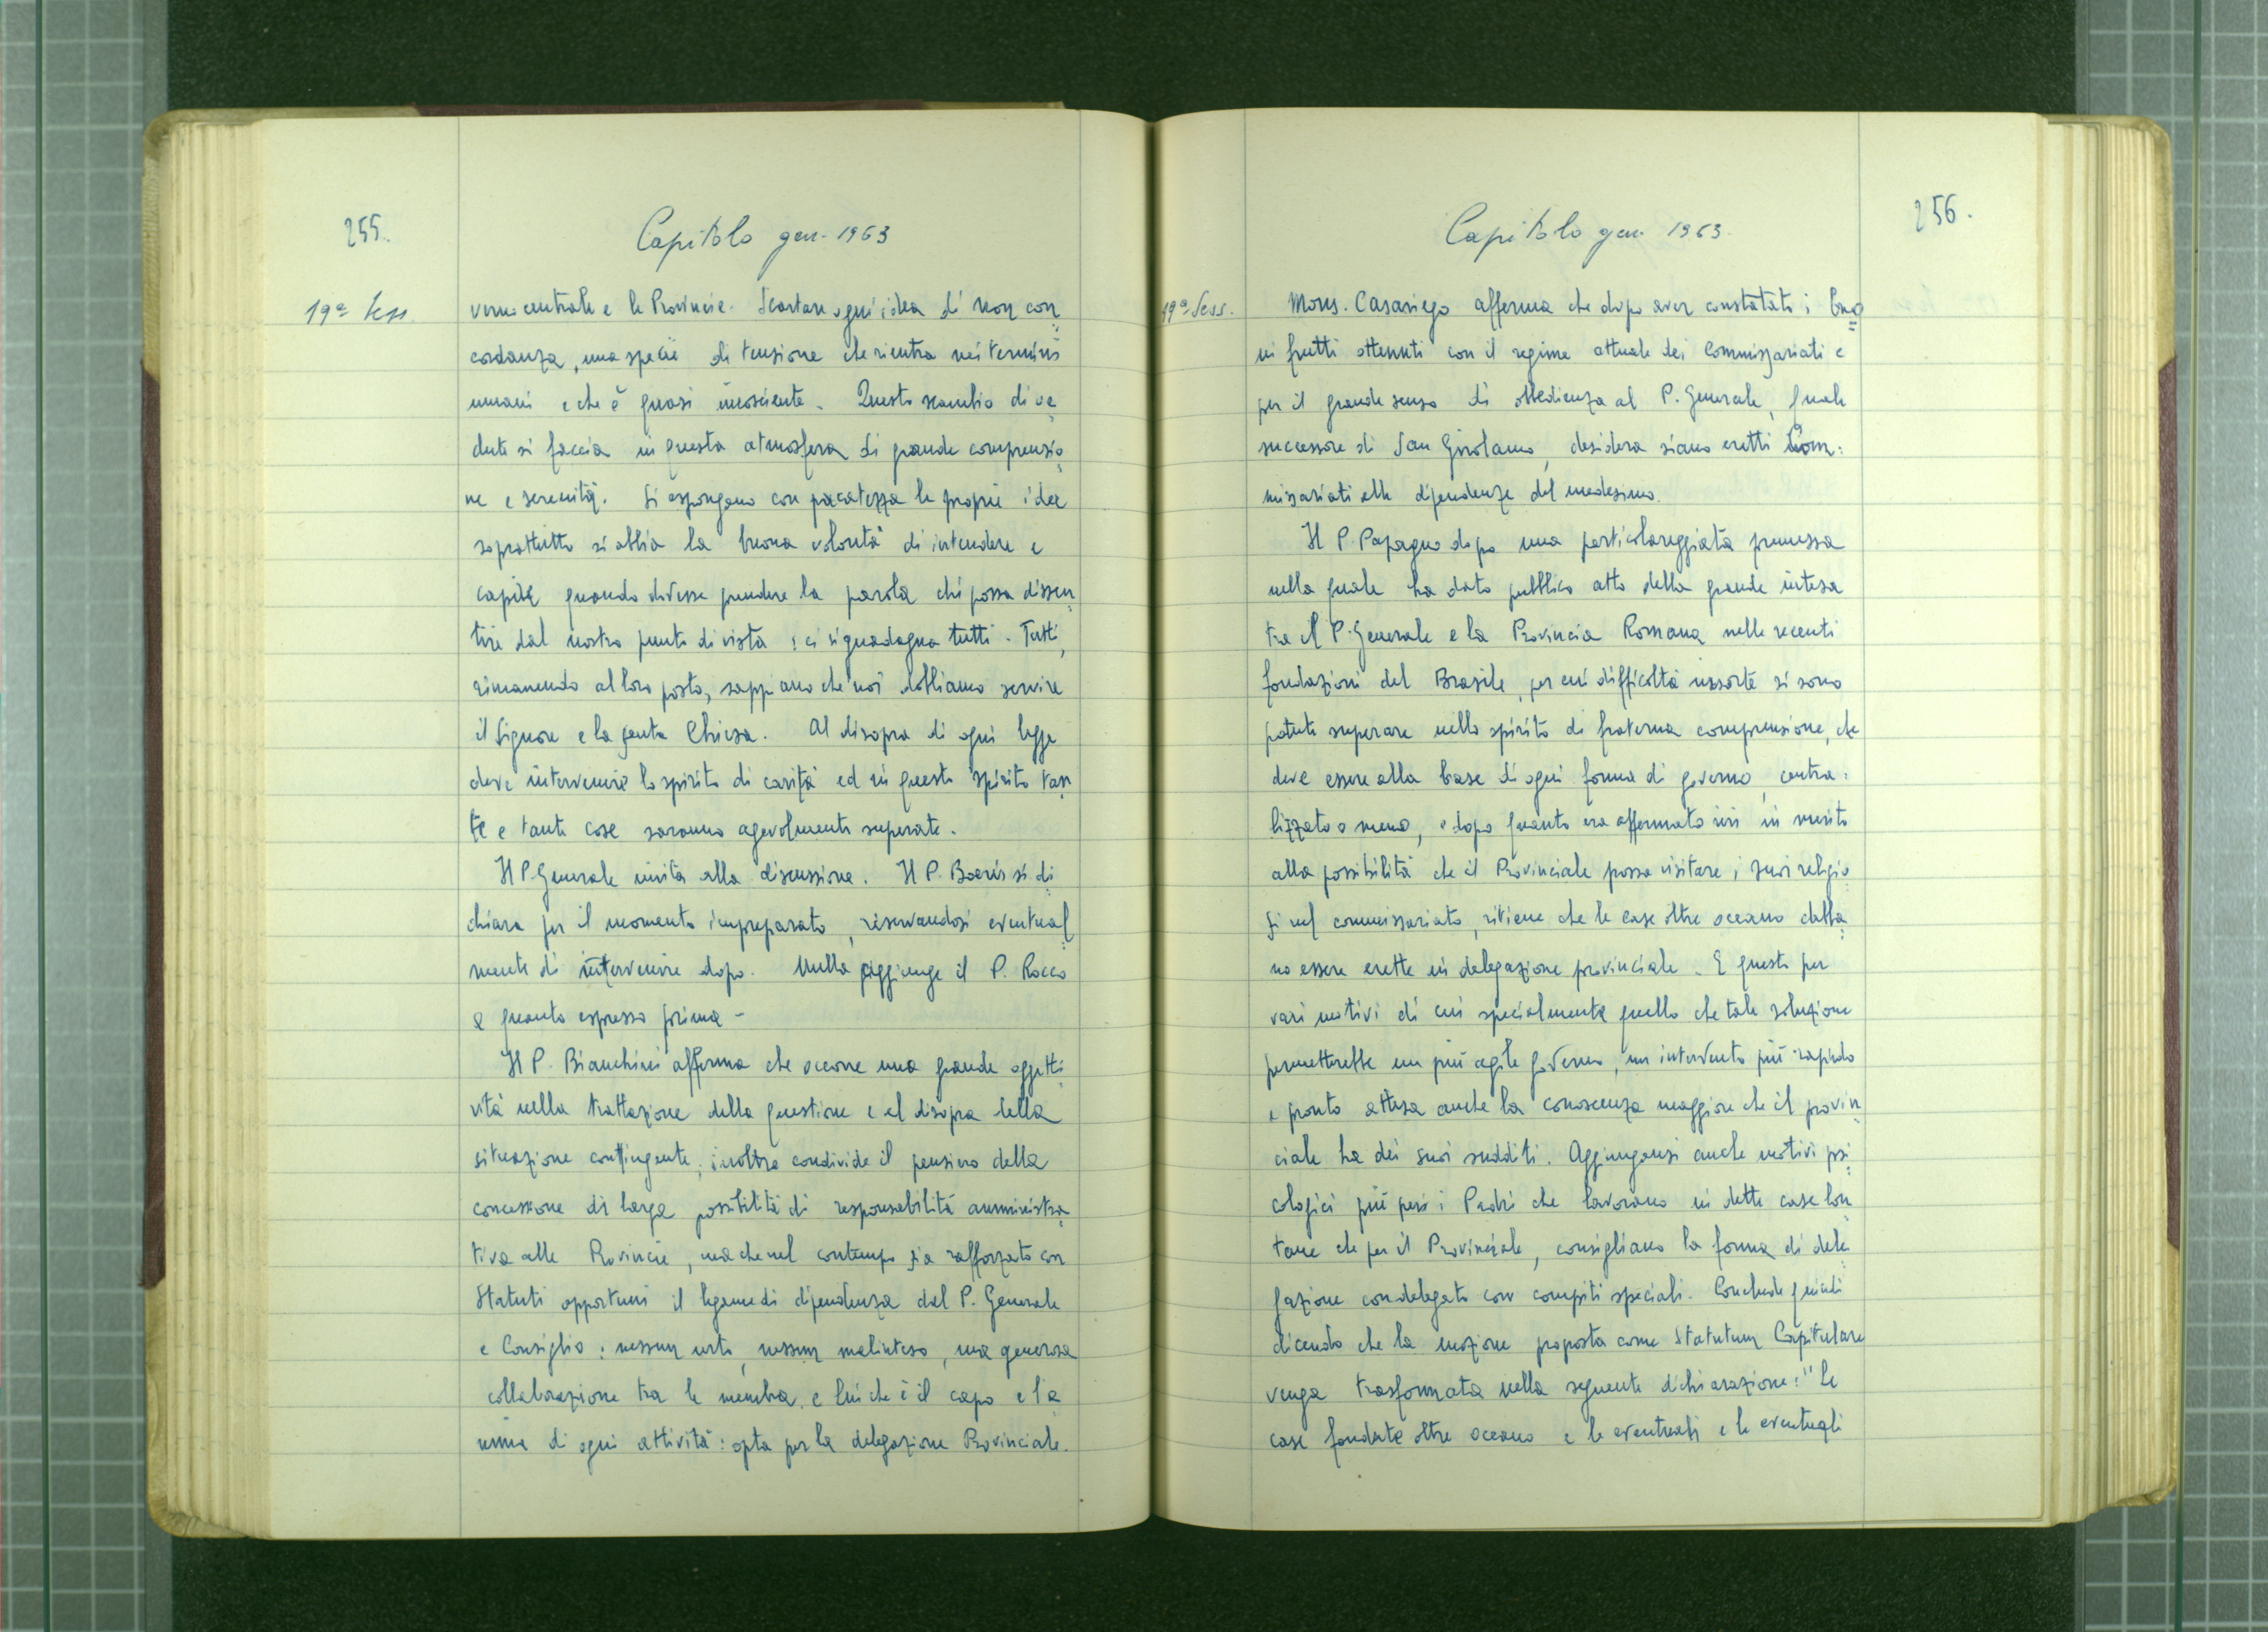 255.
Capitolo gen. 1963
19ª Sess.
verno centrale e le Provincie. Scartare ogni idea di non con
cordanza, una specie di tensione che rientra nei termini
umani e che è quasi incosciente. Questo scambio di ve
dute si faccia in questa atmosfera di grande comprensio
ne e serenità. Si espongano con pacatezza le proprie idee
soprattutto si abbia la buona volontà di intendere e
capire quando dovesse prendere la parola chi possa dissen
tire dal nostro punto di vista: ci si guadagna tutti. Tutti,
rimanendo al loro posto, sappiano che noi dobbiamo servire
il Signore e la santa Chiesa. Al disopra di ogni legge
deve intervenire lo spirito di carità ed in questo spirito tan
te e tante cose saranno agevolmente superate.
Il P. Generale invita alla discussione. Il P. Boeris si di
chiara per il momento impreparato, riservandosi eventual
mente di intervenire dopo. Nulla aggiunge il P. Rocco
a quanto espresso prima -
Il P. Bianchini afferma che occorre una grande oggetti
vità nella trattazione della questione e al disopra della
situazione contingente; inoltre condivide il pensiero della
concessione di larga possibilità di responsabilità amministra
tiva alle Provincie, ma che nel contempo sia rafforzato con
Statuti opportuni il legame di dipendenza dal P. Generale
e Consiglio: nessun urto, nessun malinteso, una generosa
collaborazione tra le membra e lui che è il capo e l'a
nima di ogni attività: opta per la delegazione Provinciale.
256.
Capitolo gen. 1963.
19ª Sess.
Mons. Casariego afferma che dopo aver constatato i buo
ni frutti ottenuti con il regime attuale dei Commissariati e
per il grande senso di obbedienza al P. Generale, quale
successore di San Girolamo, desidera siano eretti Com:
missariati alle dipendenze del medesimo.
Il P. Papagno dopo una particolareggiata premessa
nella quale ha dato pubblico atto della grande intesa
tra il P. Generale e la Provincia Romana nelle recenti
fondazioni del Brasile, per cui difficoltà insorte si sono
potute superare nello spirito di fraterna comprensione, che
deve essere alla base di ogni forma di governo, centra:
lizzato o meno, e dopo quanto era affermato ieri in merito
alla possibilità che il Provinciale possa visitare i suoi religio
si nel commissariato, ritiene che le case oltre oceano debba
no essere erette in delegazione provinciale. E questo per
vari motivi di cui specialmente quello che tale soluzione
permetterebbe un più agile governo, un intervento più rapido
e pronto attesa anche la conoscenza maggiore che il provin
ciale ha dei suoi sudditi. Aggiungansi anche motivi psi
cologici più per i Padri che lavorano in dette case lon
tane che per il Provinciale, consigliano la forma di dele
gazione con delegato con compiti speciali. Conclude quindi
dicendo che la mozione proposta come Statutum Capitulare
venga trasformata nella seguente dichiarazione: "Le
case fondate oltre oceano e le eventuali e le eventuali